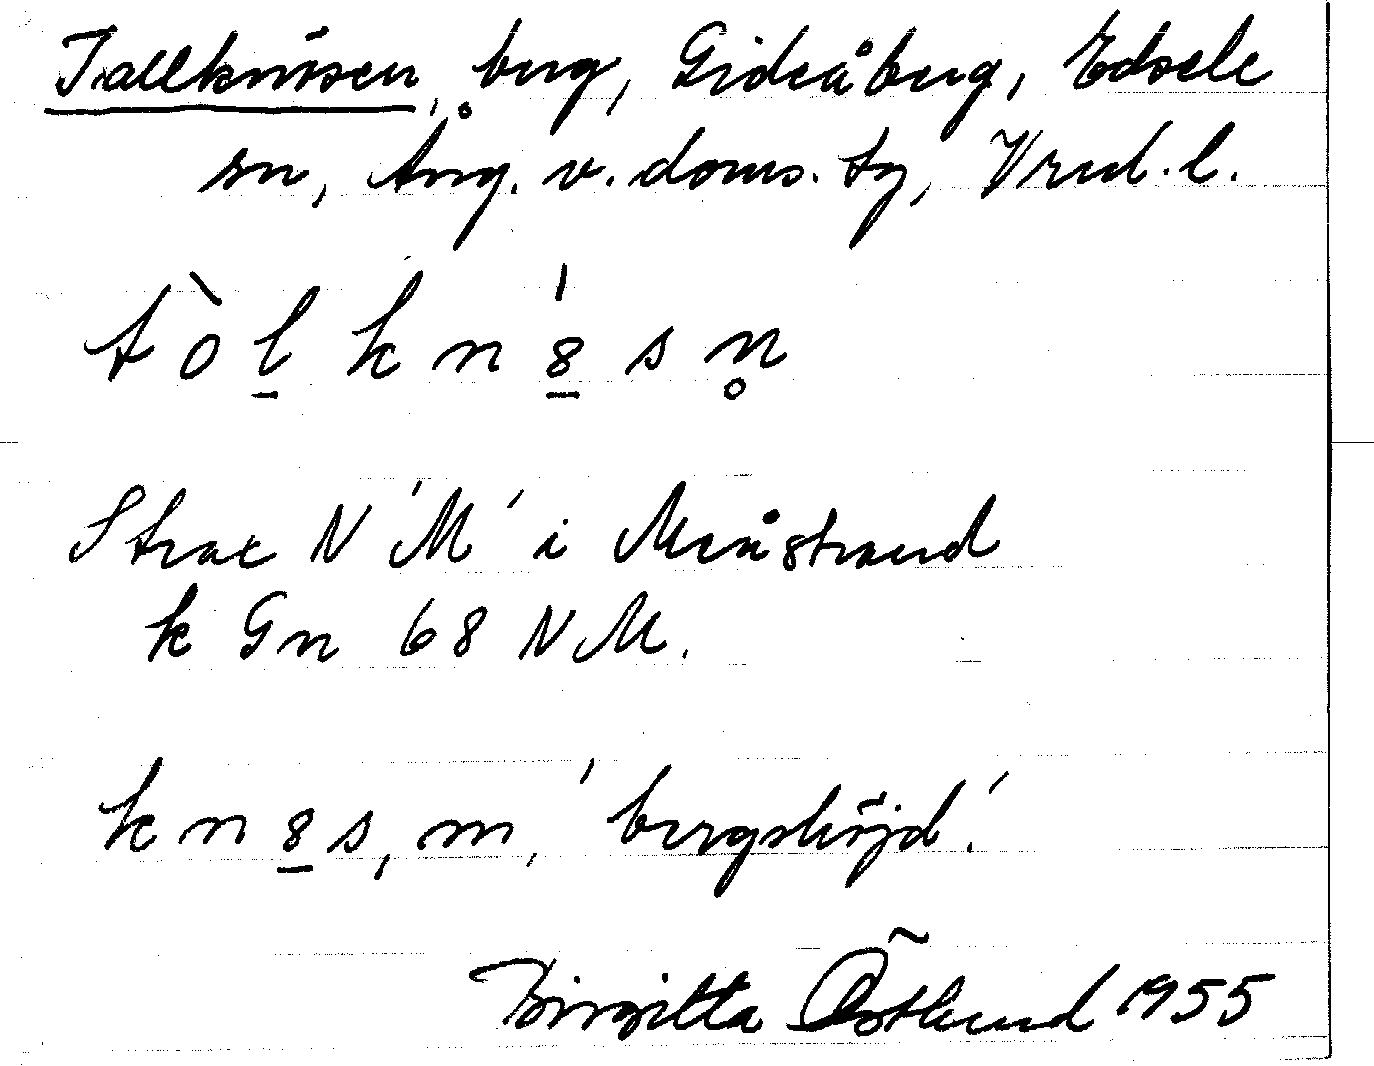 Tallknösen, berg, Gideåberg, Edsele
sn, Ång. v. doms. tg, Vrnl. l.
tòl̠ k n 8̠́ s n̥
Strax N 'M' i Meåstrand
k Gn 68 NM.
k n 8̠ s, m, 'bergshöjd.'
Birgitta Östlund 1955